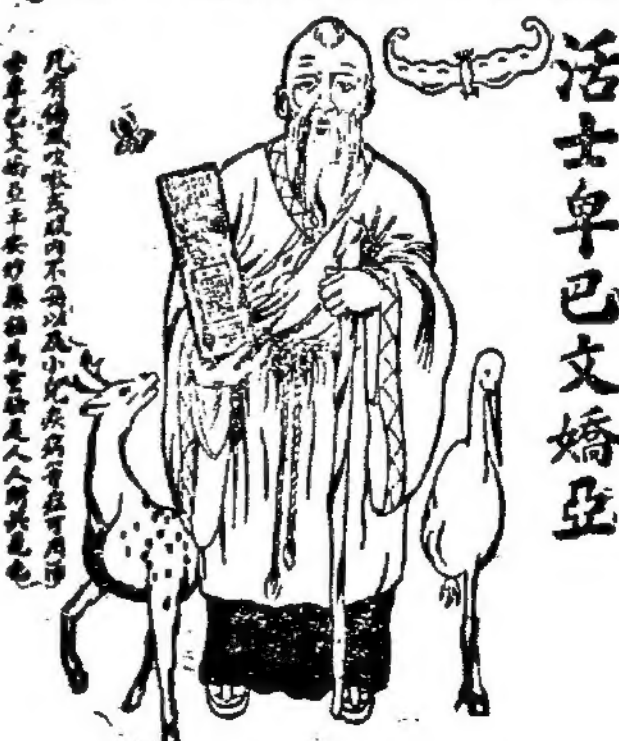 活士卑巴文嬌亞
凡有傷風咳嗽肚內不安以及小兒疾病等症可用活
士卑巴文嬌亞平安妙藥為驗是人人所共見也